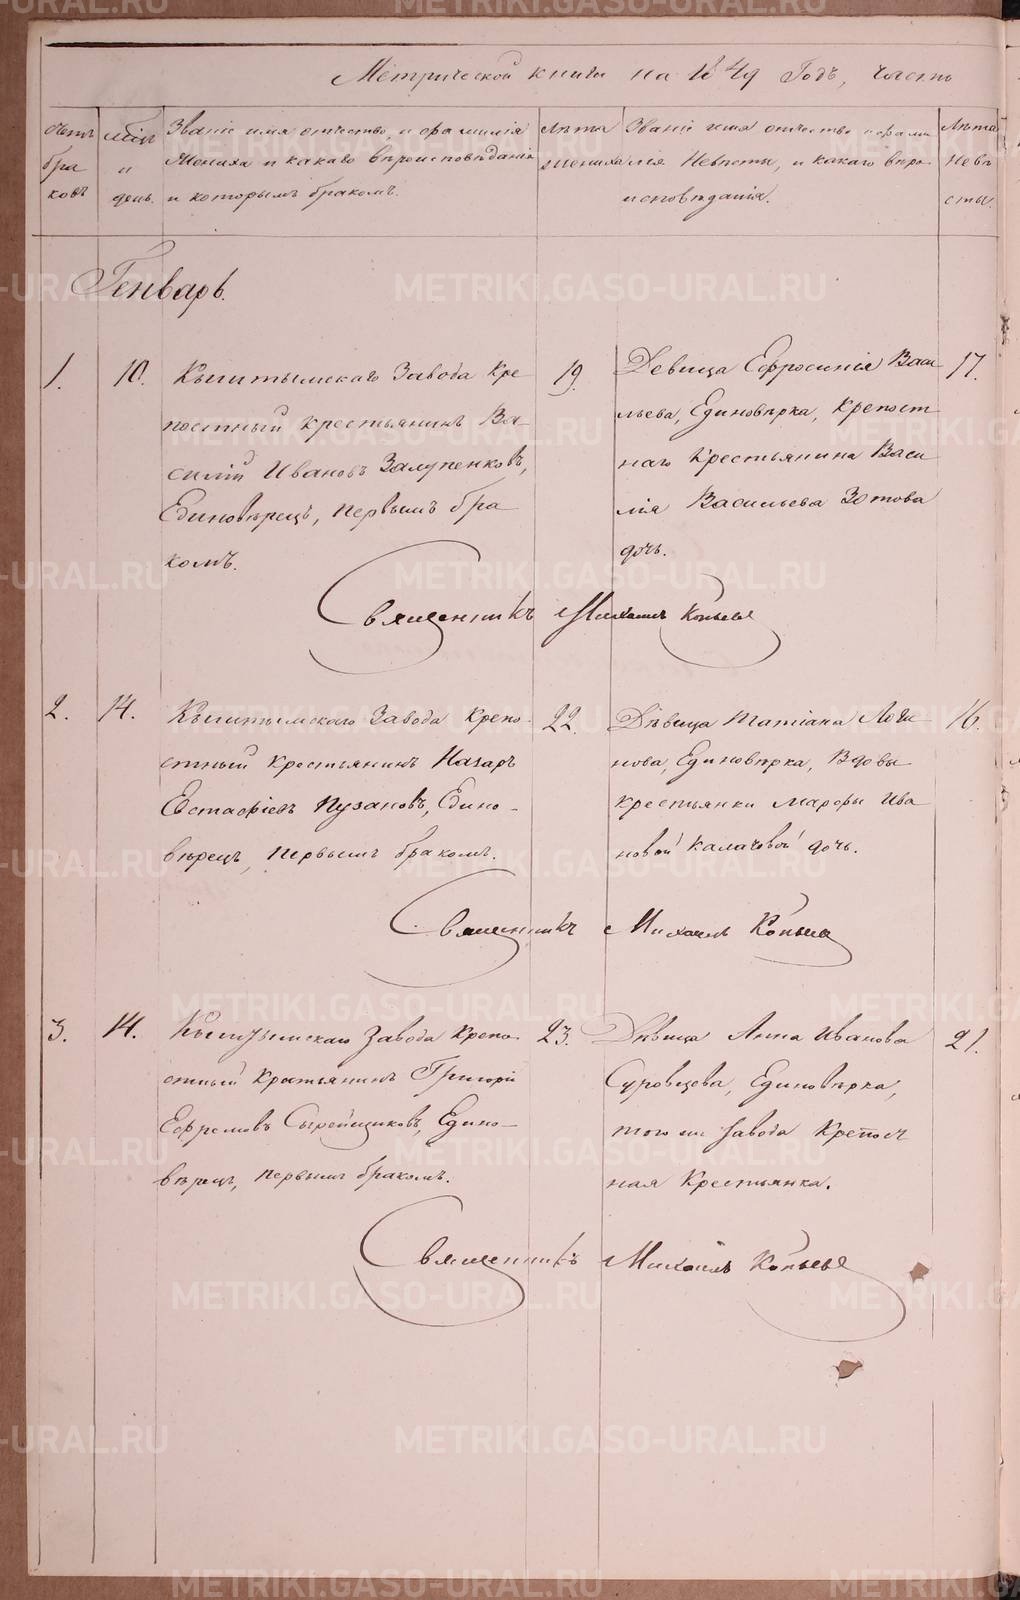 Метрической книги на 1849 Годъ, часть
Счетъ бра ковъ
мѣць и день.
Званіе имя отчество, и фамилія
Жениха и какаго вѣроисповѣданія
и которымъ бракомъ.
Лѣта жениха
Званіе имя отчество и фами
лія Невѣсты, и какаго вѣро-
исповѣданія.
Лѣта Невѣ сты.
Генварь.
1.
10.
Кыштымскаго Завода Кре
постный крестьянинъ Ва-
силій Ивановъ Залупенковъ,
Единовѣрецъ, первымъ бра
комъ.
19.
Девица Ефросинія Васи
льева, Единовѣрка, крепост
наго Крестьянина Васи
лія Васильева Зотова
дочь.
17.
Священникъ Михаилъ Копьевъ
2.
14.
Кыштымскаго Завода крепо-
стный крестьянинъ Назаръ
Евстафіевъ Пузановъ, Едино-
вѣрецъ, первымъ бракомъ.
22.
Дѣвица Татіана Логи
нова, Единовѣрка, Вдовы
крестьянки Марфы Ива
новой Калачовой дочь.
16.
Священникъ Михаилъ Копьевъ
3.
14.
Кыштымскаго Завода крепо-
стный Крестьянинъ Григорій
Ефремовъ Сырейщиковъ, Едино-
вѣрецъ, первымъ бракомъ.
23.
Дѣвица Анна Иванова
Суровцева, Единовѣрка,
того же Завода Крепост
ная Крестьянка.
21.
Священникъ Михаилъ Копьевъ
METRIKI.GASO-URAL.RU